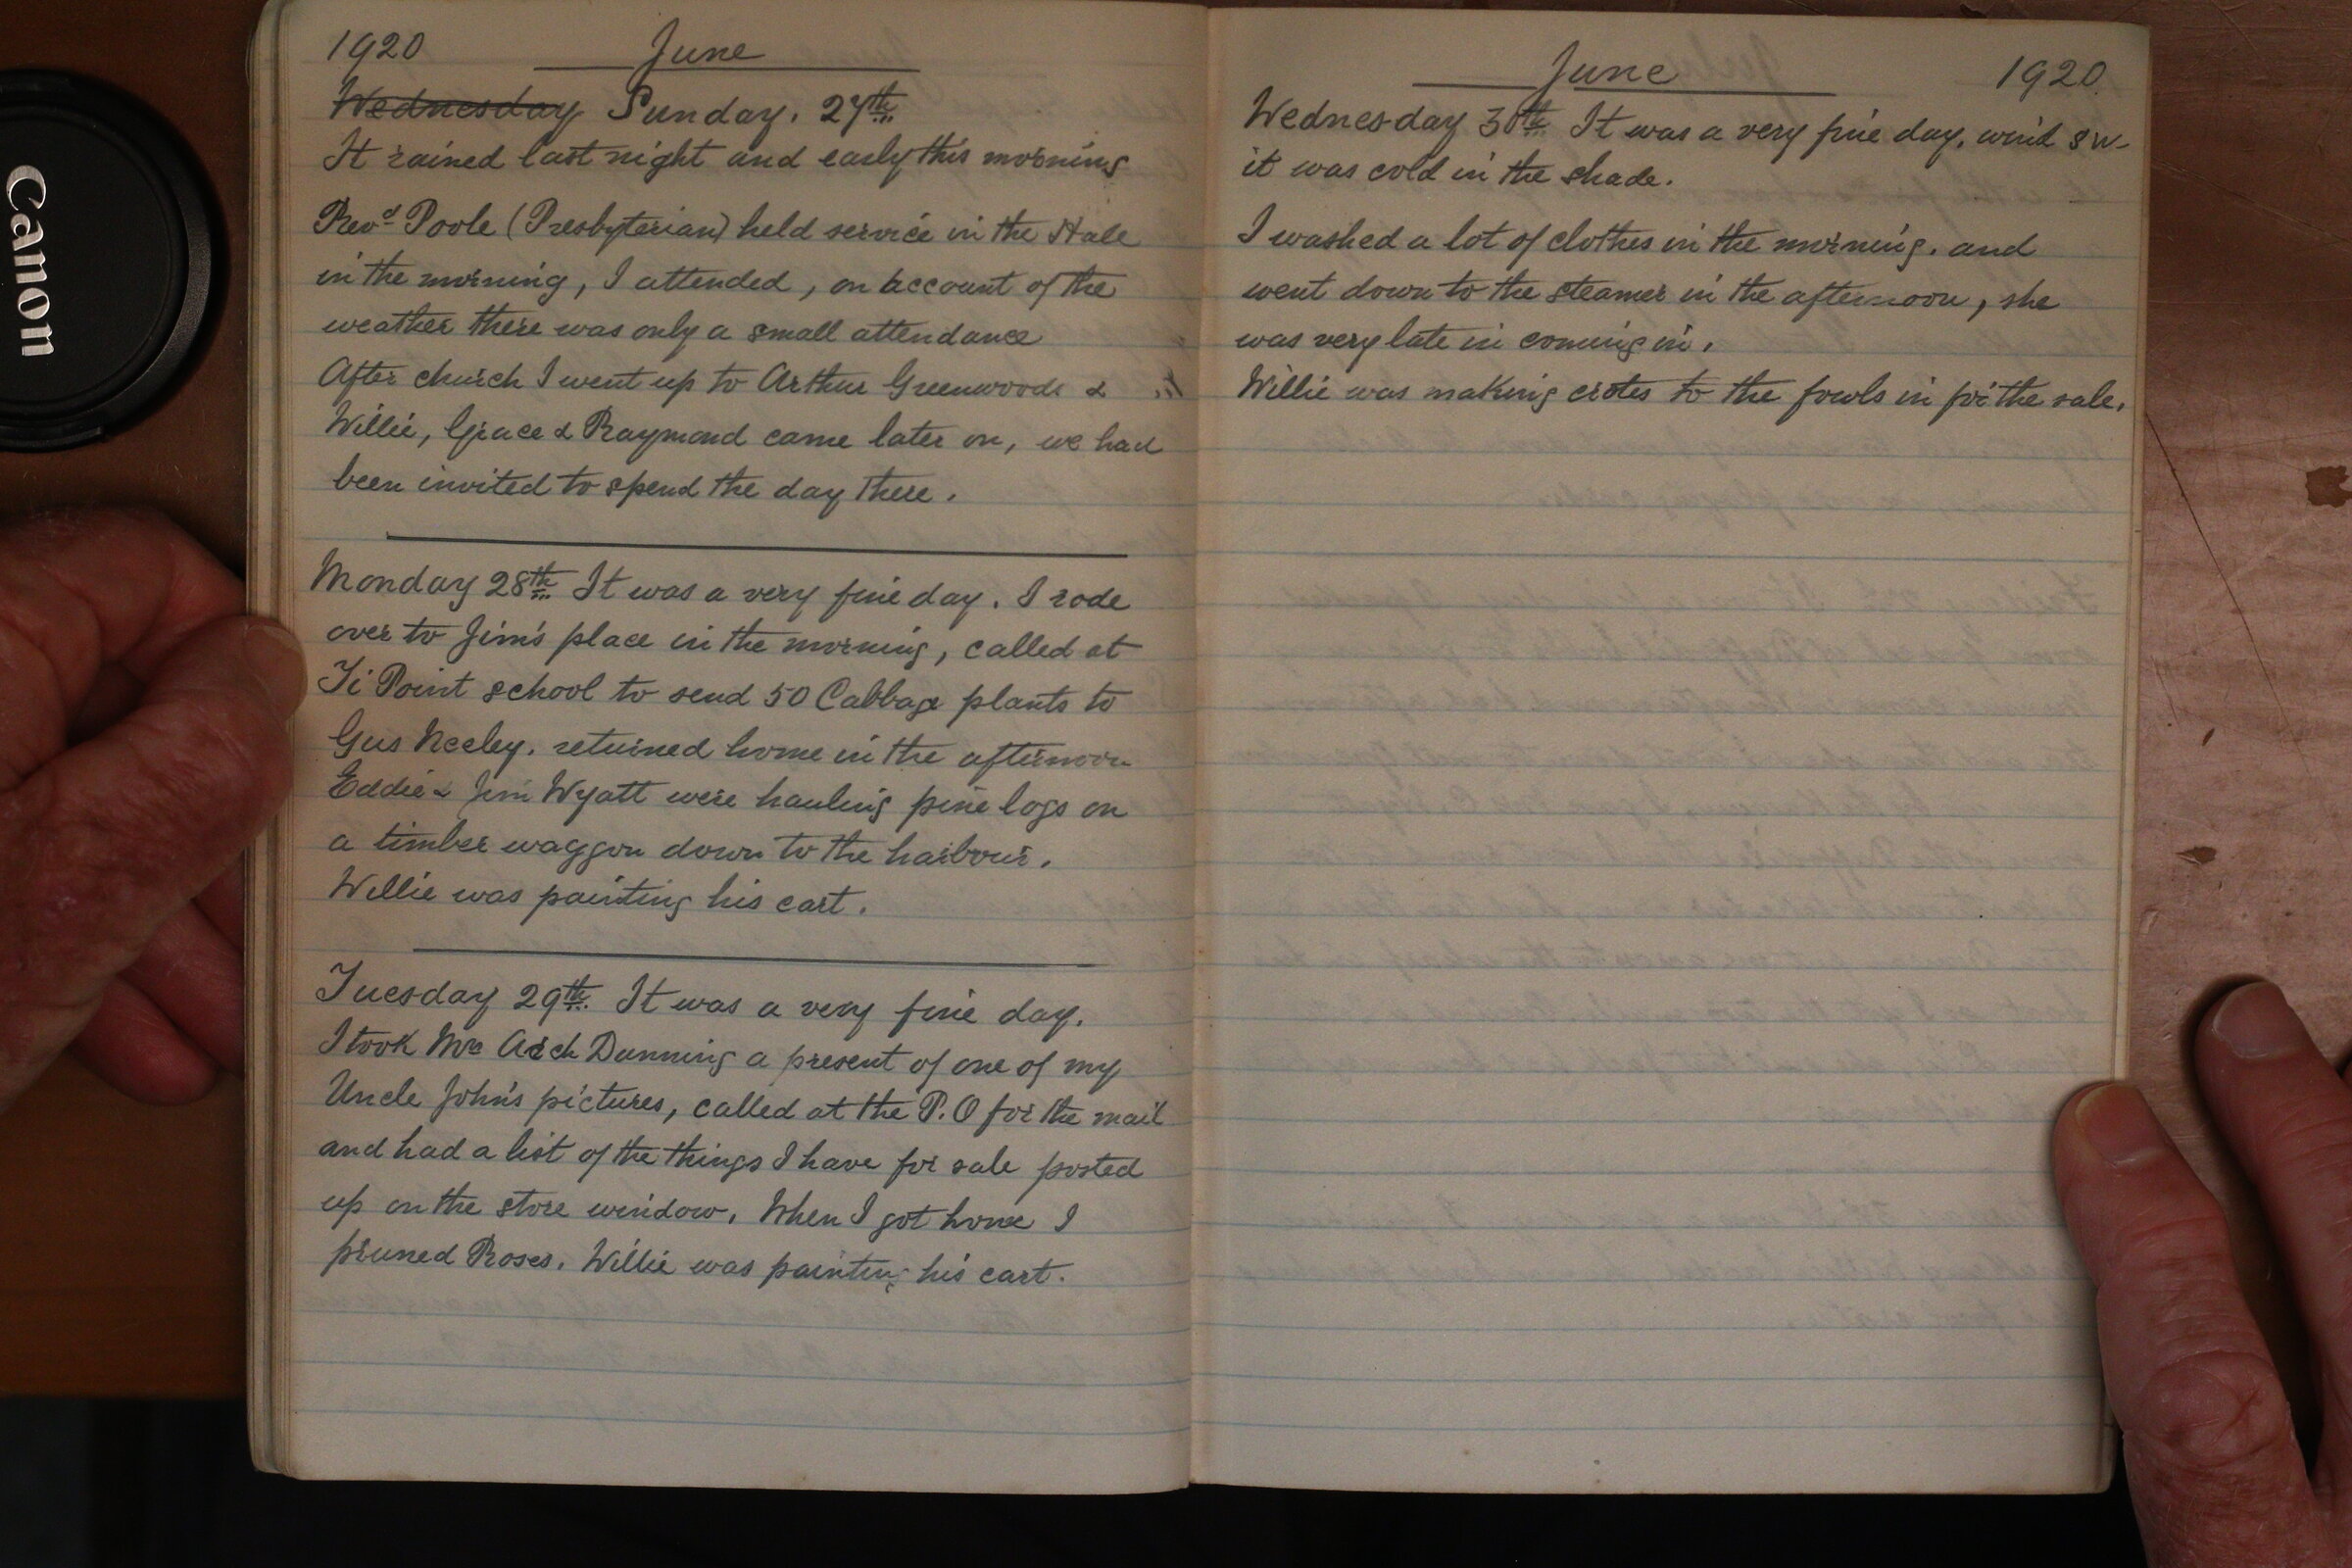 Canon
1920 June
~~Wednesday~~ Sunday. 27th
It rained last night and early this morning
Revd Poole (Presbyterian) held service in the Hale
in the morning, I attended, on account of the
weather there was only a small attendance
After church I went up to Arthur Greenwoods &
Willie, Grace & Raymond came later on, we had
been invited to spend the day there.
Monday 28th It was a very fine day. I rode
over to Jim's place in the morning, called at
Ti Point school to send 50 Cabbage plants to
Gus Neeley. returned home in the afternoon
Eddie & Jim Wyatt were hauling pine logs on
a timber waggon down to the harbour.
Willie was painting his cart.
Tuesday 29th. It was a very fine day.
I took Mrs Arch Dunning a present of one of my
Uncle John's pictures, called at the P.O for the mail
and had a list of the things I have for sale posted
up on the store window. When I got home I
pruned Roses. Willie was painting his cart.
June 1920.
Wednesday 30th It was a very fine day. wind SW
it was cold in the shade.
I washed a lot of clothes in the morning. and
went down to the steamer in the afternoon, she
was very late in coming in.
Willie was making crates to the fowls in for the sale.